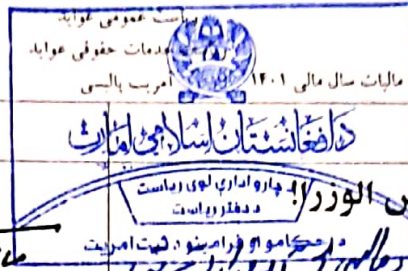 ریاست عمومی عواید
خدمات حقوقی عواید
مالیات سال مالی ۱۴۰۱
آمریت پالیسی
د افغانستان اسلامي امارت
چارو اداري لوی ریاست
د دفتر ریاست
الوزرا
د احکامو او فرامینو د ثبت آمریت